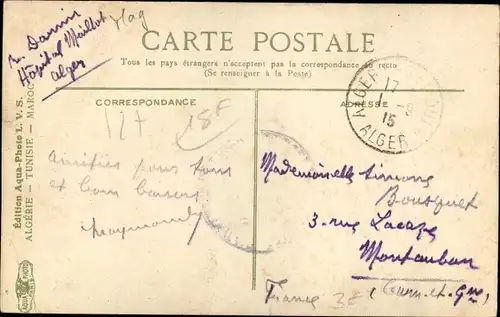 Hôpital Maillot
Alger
CARTE POSTALE
Tous les pays étrangers n'acceptent pas la correspondance au recto
(Se renseigner à la Poste)
CORRESPONDANCE
ADRESSE
ALGER
17
15
ALGER
127
18F
amitiés pour tous
et bons baisers
Raymond
Mademoiselle Simone
Bousquet
3. rue Lacaze
Montauban
(Tarn-et-Gne)
France
Édition Aqua-Photo L. V. S.
ALGÉRIE - TUNISIE - MAROC